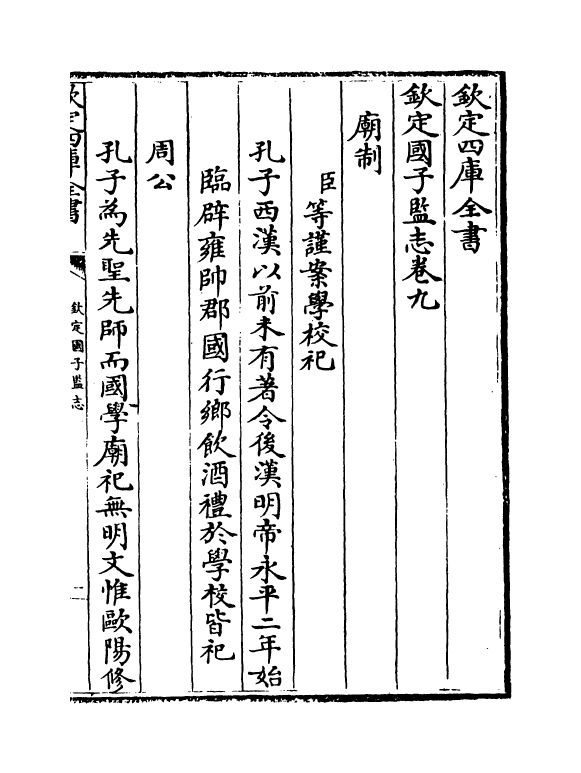 欽定四庫全書
欽定國子監志卷九
廟制
臣等謹案學校祀
孔子西漢以前未有著令後漢明帝永平二年始
臨辟雍帥郡國行鄉飲酒禮於學校皆祀
周公
孔子為先聖先師而國學廟祀無明文惟歐陽修
欽定四庫全書
欽定國子監志